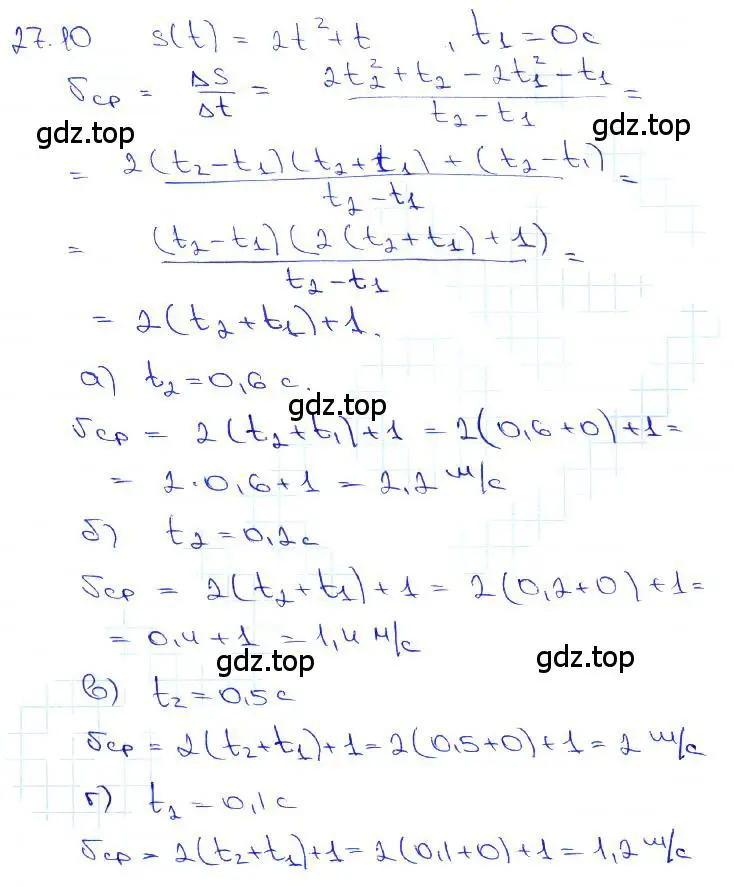 27.10 s(t) = 2t² + t , t₁ = 0с
υср = ΔS/Δt = (2t₂² + t₂ - 2t₁² - t₁)/(t₂ - t₁) =
gdz.top gdz.top
= (2(t₂ - t₁)(t₂ + t₁) + (t₂ - t₁))/(t₂ - t₁) =
= ((t₂ - t₁)(2(t₂ + t₁) + 1))/(t₂ - t₁) =
= 2(t₂ + t₁) + 1.
а) t₂ = 0,6 с.
gdz.top
υср = 2(t₂ + t₁) + 1 = 2(0,6 + 0) + 1 =
= 2·0,6 + 1 = 2,2 м/с
б) t₂ = 0,2с
υср = 2(t₂ + t₁) + 1 = 2(0,2 + 0) + 1 =
= 0,4 + 1 = 1,4 м/с
gdz.top gdz.top
в) t₂ = 0,5 с
υср = 2(t₂ + t₁) + 1 = 2(0,5 + 0) + 1 = 2 м/с
г) t₂ = 0,1с
υср = 2(t₂ + t₁) + 1 = 2(0,1 + 0) + 1 = 1,2 м/с